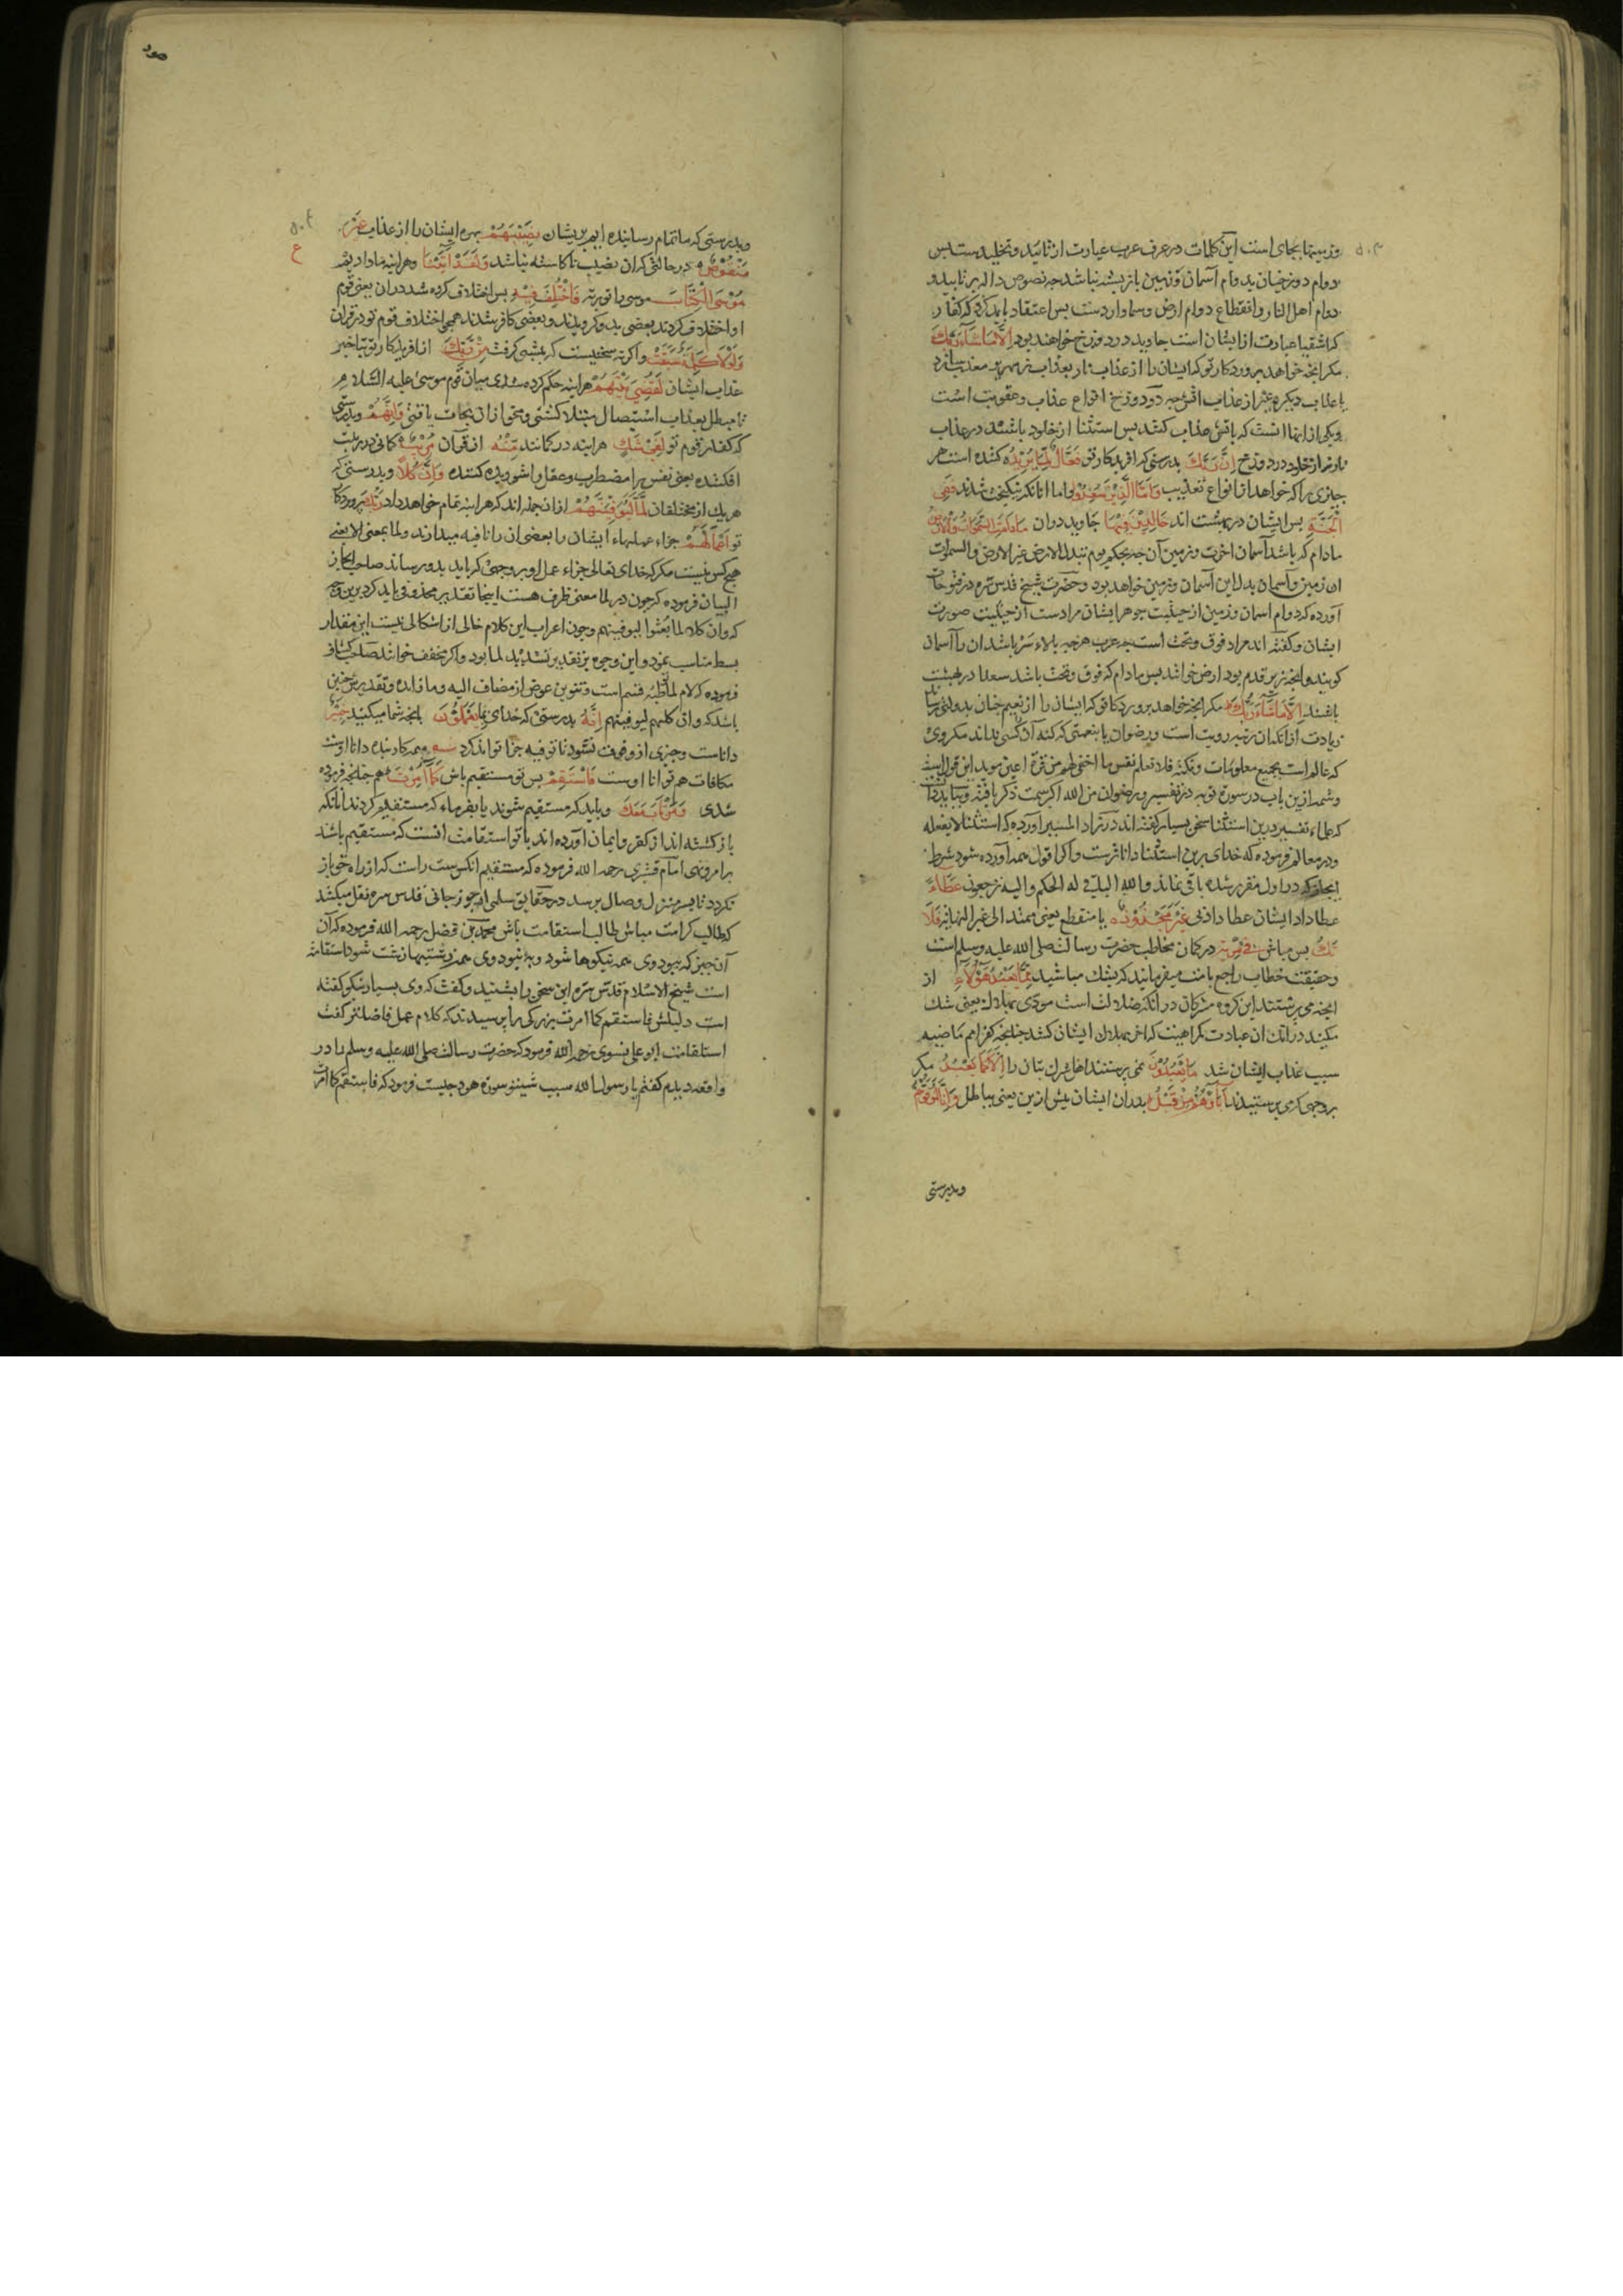 وزمینها بجای است این کلمات در عرف عرب عبارت از تائید و تخلیدست پس
دوام دوزخیان بدوام آسمان و زمین باز بسته نباشد چه نصوص داله بر تابید و
دوام اهل النار و انقطاع دوام ارض و سما وارد است پس اعتقاد باید کرد که کفار
که اشقیا عبارت از ایشان است جاوید در دوزخ خواهند بود اِلَّا مَا شَآءَ رَبُّكَ
مکر انچه خواهد پروردکار تو که ایشان را از عذاب نار بعذاب زمهریر معذب سازد
یا عذاب دیکر بغیر از عذاب اتش چه در دوزخ انواع عذاب و عقوبت است
و یکی از انها انست که باتش عذاب کنند پس استثنا از خلود باشد در عذاب
نار نه از خلود در دوزخ اِنَّ رَبَّكَ بدرستی که افریدکار تو فَعَّالٌ لِمَا يُرِيْدُ کننده است هر
چیزی را که خواهد از انواع تعذیب وَاَمَّا الَّذِيْنَ سُعِدُوْا و اما انانکه نیکبخت شدند فَفِي
الْجَنَّةِ پس ایشان در بهشت اند خَالِدِيْنَ فِيْهَا جاوید دران مَا دَامَتِ السَّمٰوٰتُ وَالْاَرْضُ
مادام که باشد آسمان اخرت و زمین آن چه بحکم یوم تبدل الارض غیر الارض والسموات
این زمین و آسمان بدل این آسمان و زمین خواهد بود و حضرت شیخ قدس سره در فتوحات
آورده که دوام اسمان و زمین از حیثیت جوهر ایشان مرادست نه از حیثیت صورت
ایشان و کفته اند مراد فوق و تحت است چه عرب هرچه بالاء سر باشد ان را آسمان
کویند و انچه زیر قدم بود ارض خوانند پس مادام که فوق و تحت باشد سعدا در بهشت
باشند اِلَّا مَا شَآءَ رَبُّكَ مکر انچه خواهد پروردکار تو که ایشان را از نعیم جنان بدولتی رساند
زیادت از ان که آن مرتبه رویت است و رضوان یا بنعمتی که کنه آن کسی نداند مکر وی
که عالم است بجمیع معلومات و نکته فلا تعلم نفس ما اخفی لهم من قرة اعین موید این قول است
و شمه ازین باب در سورة توبه در تفسیر و رضوان من الله اکبر سمت ذکر یافته و بباید دانست
که علماء تفسیر درین استثنا سخن بسیار کفته اند در زاد المسیر آورده که استثنا لا یفعله
و در معالم فرموده که خدای برین استثنا داناترست و اکر اقوال همه آورده شود شرط
ایجاز که در اول مقرر شده باقی نماند و الله الباقی له الحکم و الیه ترجعون عَطَآءً
عطا داد ایشان عطا دادنی غَيْرَ مَجْذُوْذٍ نا منقطع یعنی ممتد الی غیر النهایه فَلَا
تَكُ پس مباش فِيْ مِرْيَةٍ در کمان مخاطب حضرت رسالت صلی الله علیه وسلم است
و حقیقت خطاب راجع بامت میفرماید که بشك مباشید مِمَّا يَعْبُدُ هٰٓؤُلَآءِ از
انچه می پرستند این کروه مشرکان در انکه ضلالت است مودی بهلاك یعنی شك
مکنید در انك ان عبادت کمراهیست که اخر بهلاك ایشان کشد چنانچه کفر امم ماضیه
سبب عذاب ایشان شد مَا يَعْبُدُوْنَ نمی پرستند اهل شرك بتان را اِلَّا كَمَا يَعْبُدُ مکر
بر وجهی که می پرستیدند اٰبَآؤُهُمْ مِنْ قَبْلُ پدران ایشان پیش ازین یعنی بباطل وَاِنَّا لَمُوَفُّوْهُمْ
وبدرستی
وبدرستی که ما تمام رساننده ایم بریشان نَصِيْبَهُمْ بهره ایشان را از عذاب غَيْرَ
مَنْقُوْصٍ در حالتی که ان نصیب ناکاسته نباشد وَلَقَدْ اٰتَيْنَا و هراینه ما دادیم
مُوْسَى الْكِتَابَ موسی را توریة فَاخْتُلِفَ فِيْهِ پس اختلاف کرده شد دران یعنی قوم
او اختلاف کردند بعضی بدو کرویدند و بعضی کافر شدند همچو اختلاف قوم تو در قران
وَلَوْلَا كَلِمَةٌ سَبَقَتْ و اکر نه سخنیست که پیشی کرفت مِنْ رَبِّكَ از افریدکار تو بتاخیر
عذاب ایشان لَقُضِيَ بَيْنَهُمْ هراینه حکم کرده شدی میان قوم موسی علیه السلام
تا مبطل بعذاب استیصال مبتلا کشتی و محق ازان نجات یافتی وَاِنَّهُمْ وبدرستی
که کفار قوم تو لَفِيْ شَكٍّ هراینه در کمانند مِنْهُ از قرآن مُرِيْبٍ کمانی در ریبت
افکننده یعنی نفس را مضطرب و عقل را شوریده کننده وَاِنَّ كُلًّا وبدرستی که
هریك از مختلفان لَمَّا لَيُوَفِّيَنَّهُمْ ازان جمله اند که هراینه تمام خواهد داد رَبُّكَ پروردکار
تو اَعْمَالَهُمْ جزاء عملهاء ایشان را بعضی ان را نافیه میدارند و لما بمعنی الا یعنی
هیچ کس نیست مکر که خدای تعالی جزاء عمل او بر وجهی که باید بدو رساند صاحب ایجاز
البیان فرموده که چون در لما معنی ظرف هست اینجا تقدیر محذوفی باید کرد برین وجه
که وان کلا لما بعثوا لیوفینهم و چون اعراب این کلام خالی از اشکالی نیست این مقدار
بسط مناسب نمود و این وجوه بر تقدیر تشدید لما بود و اکر مخفف خوانند صاحب کشاف
فرموده که لام لما توطیه قسم است و تنوین عوض از مضاف الیه و ما زایده و تقدیرش چنین
باشد که وان کلهم لیوفینهم اِنَّهُ بدرستی که خدای بِمَا يَعْمَلُوْنَ بانچه شما میکنید خَبِيْرٌ
داناست و چیزی ازو فوت نشود تا توفیه جزا تواند کرد همه کارنده دانا اوست
مکافات هم توانا اوست فَاسْتَقِمْ پس تو مستقیم باش كَمَآ اُمِرْتَ هم چنانچه فرموده
شدی وَمَنْ تَابَ مَعَكَ و باید که مستقیم شوند یا بفرماء که مستقیم کردند انانکه
باز کشته اند از کفر و ایمان آورده اند با تو استقامت انست که مستقیم باشد
بر امر و نهی امام قشیری رحمه الله فرموده که مستقیم انکس ست راست که از راه حق باز
نکردد تا بسر منزل وصال برسد در حقایق سلمی از جوزجانی قدس سره نقل میکند
که طالب کرامت مباش طالب استقامت باش محمد بن فضل رحمه الله فرموده که آن
آن چیز که ببود وی همه نیکوها شود و به نبود وی همه زشتیها زشت شود استقامت
است شیخ الاسلام قدس سره این سخن را بشنید و کفت که وی بسیار نیکو کفته
است دلیلش فاستقم کما امرت بزرکی را پرسیدند که کدام عمل فاضلتر کفت
استقامت ابو علی نسوی رحمه الله فرمود که حضرت رسالت صلی الله علیه وسلم را در
واقعه دیدم کفتم یا رسول الله سبب شیبتنی سورة هود چیست فرمود که فاستقم کما امرت